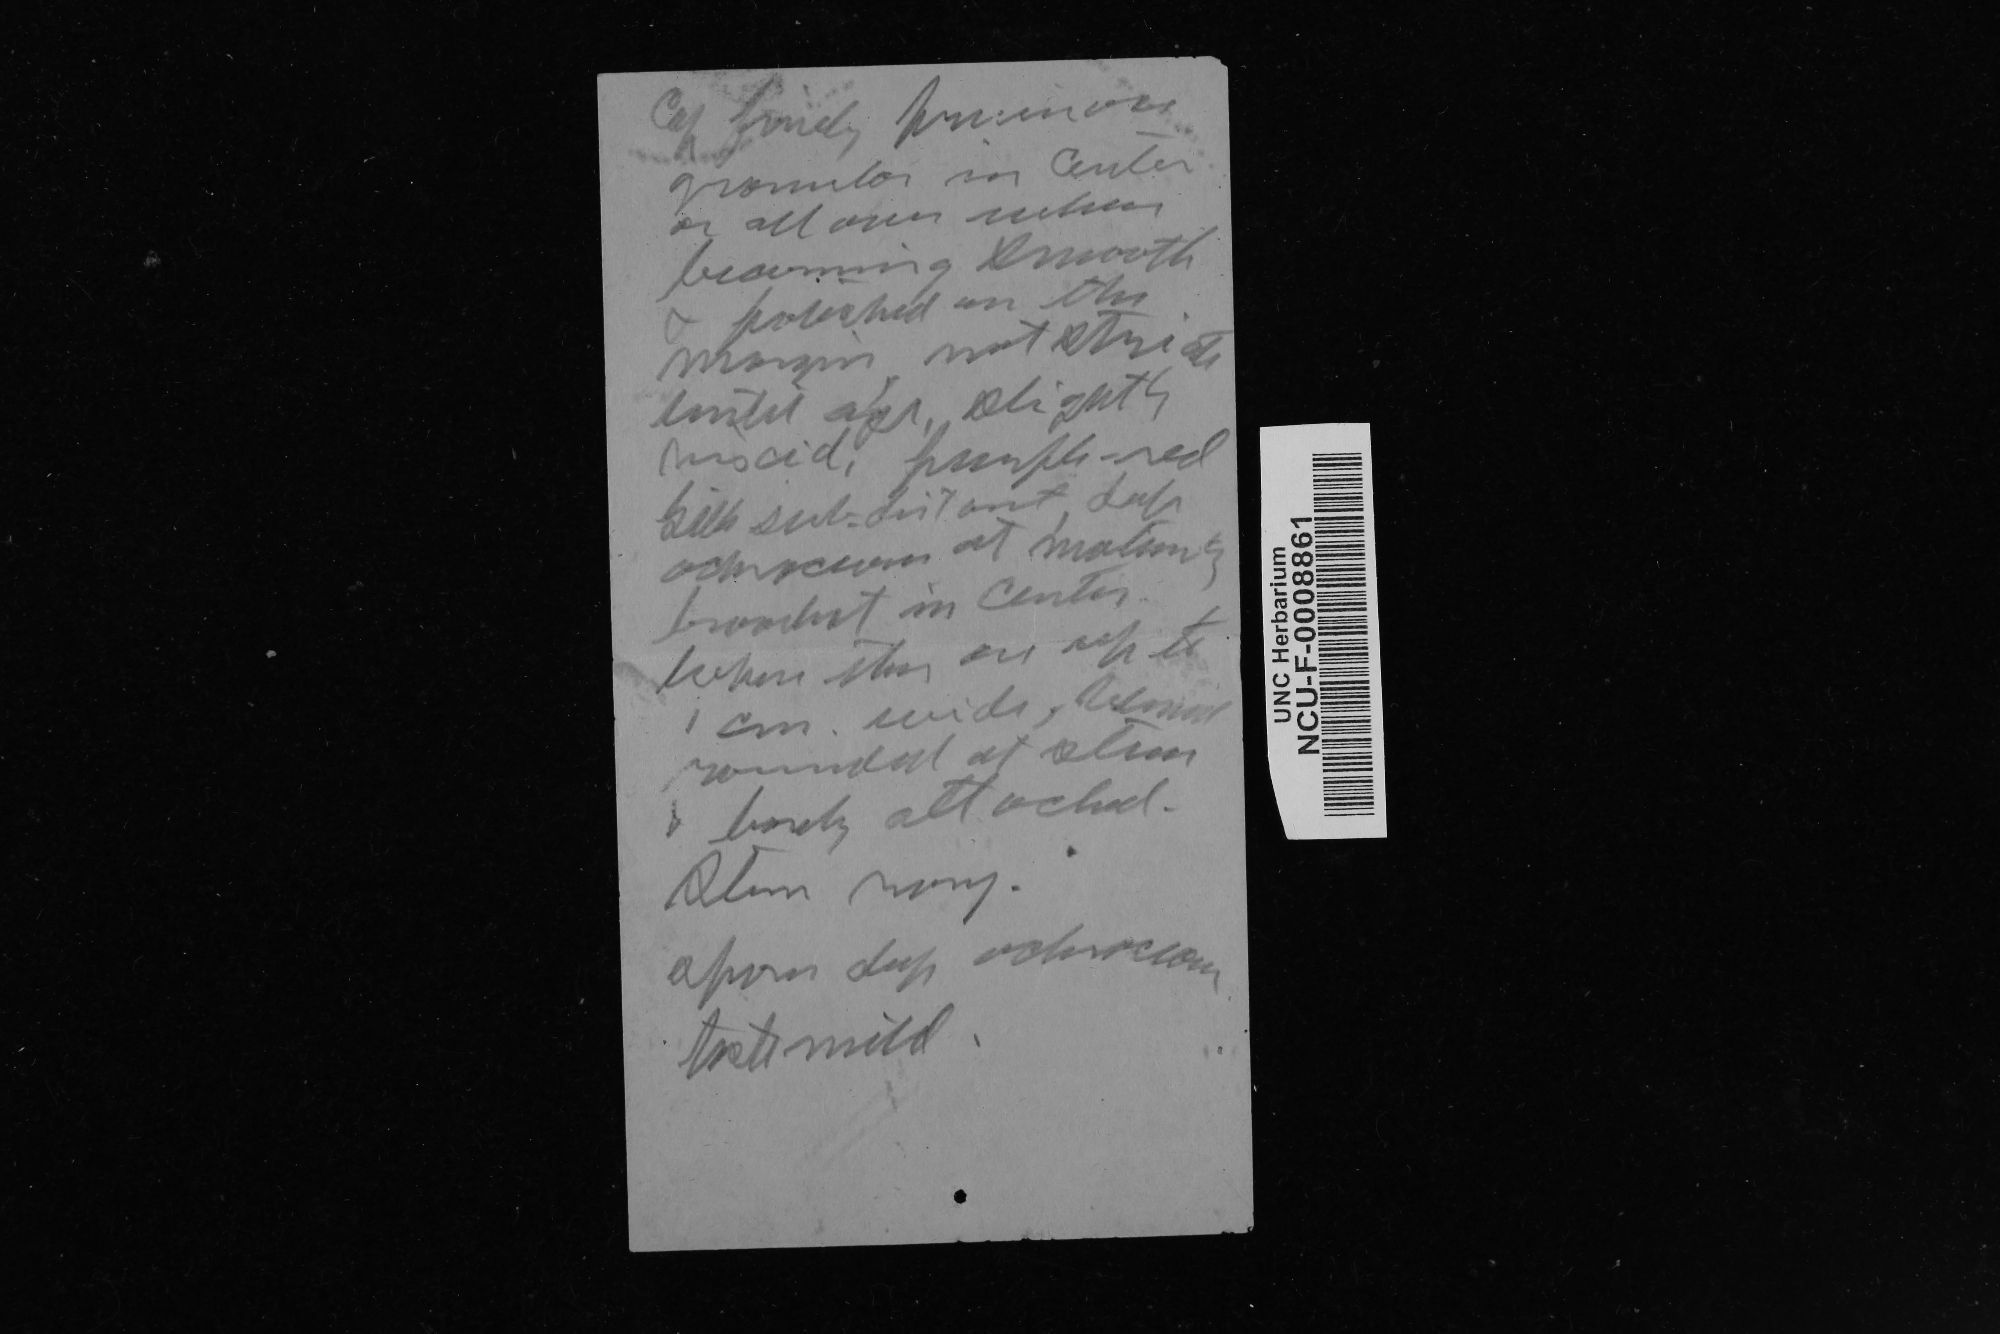 Cap finely pruinose
granular in center
or all over when
becoming smooth
& polished on the
margin, not striate
until age, slightly
viscid, purple-red
Gills sub-distant, deep
ochraceous at maturity
broadest in center
where they are up to
1 cm. wide,
rounded at stem
& barely attached.
Stem rosy.
spores deep ochraceous
taste mild.
UNC Herbarium
NCU-F-0008861